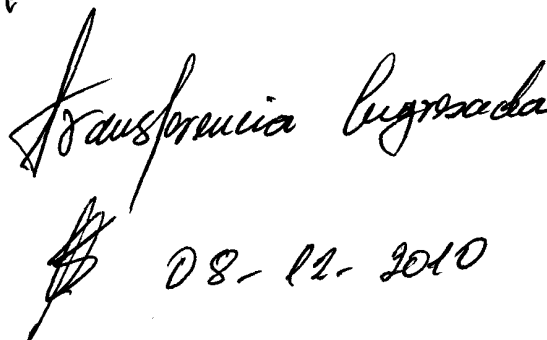 Transferencia Ingresada
08-12-2010